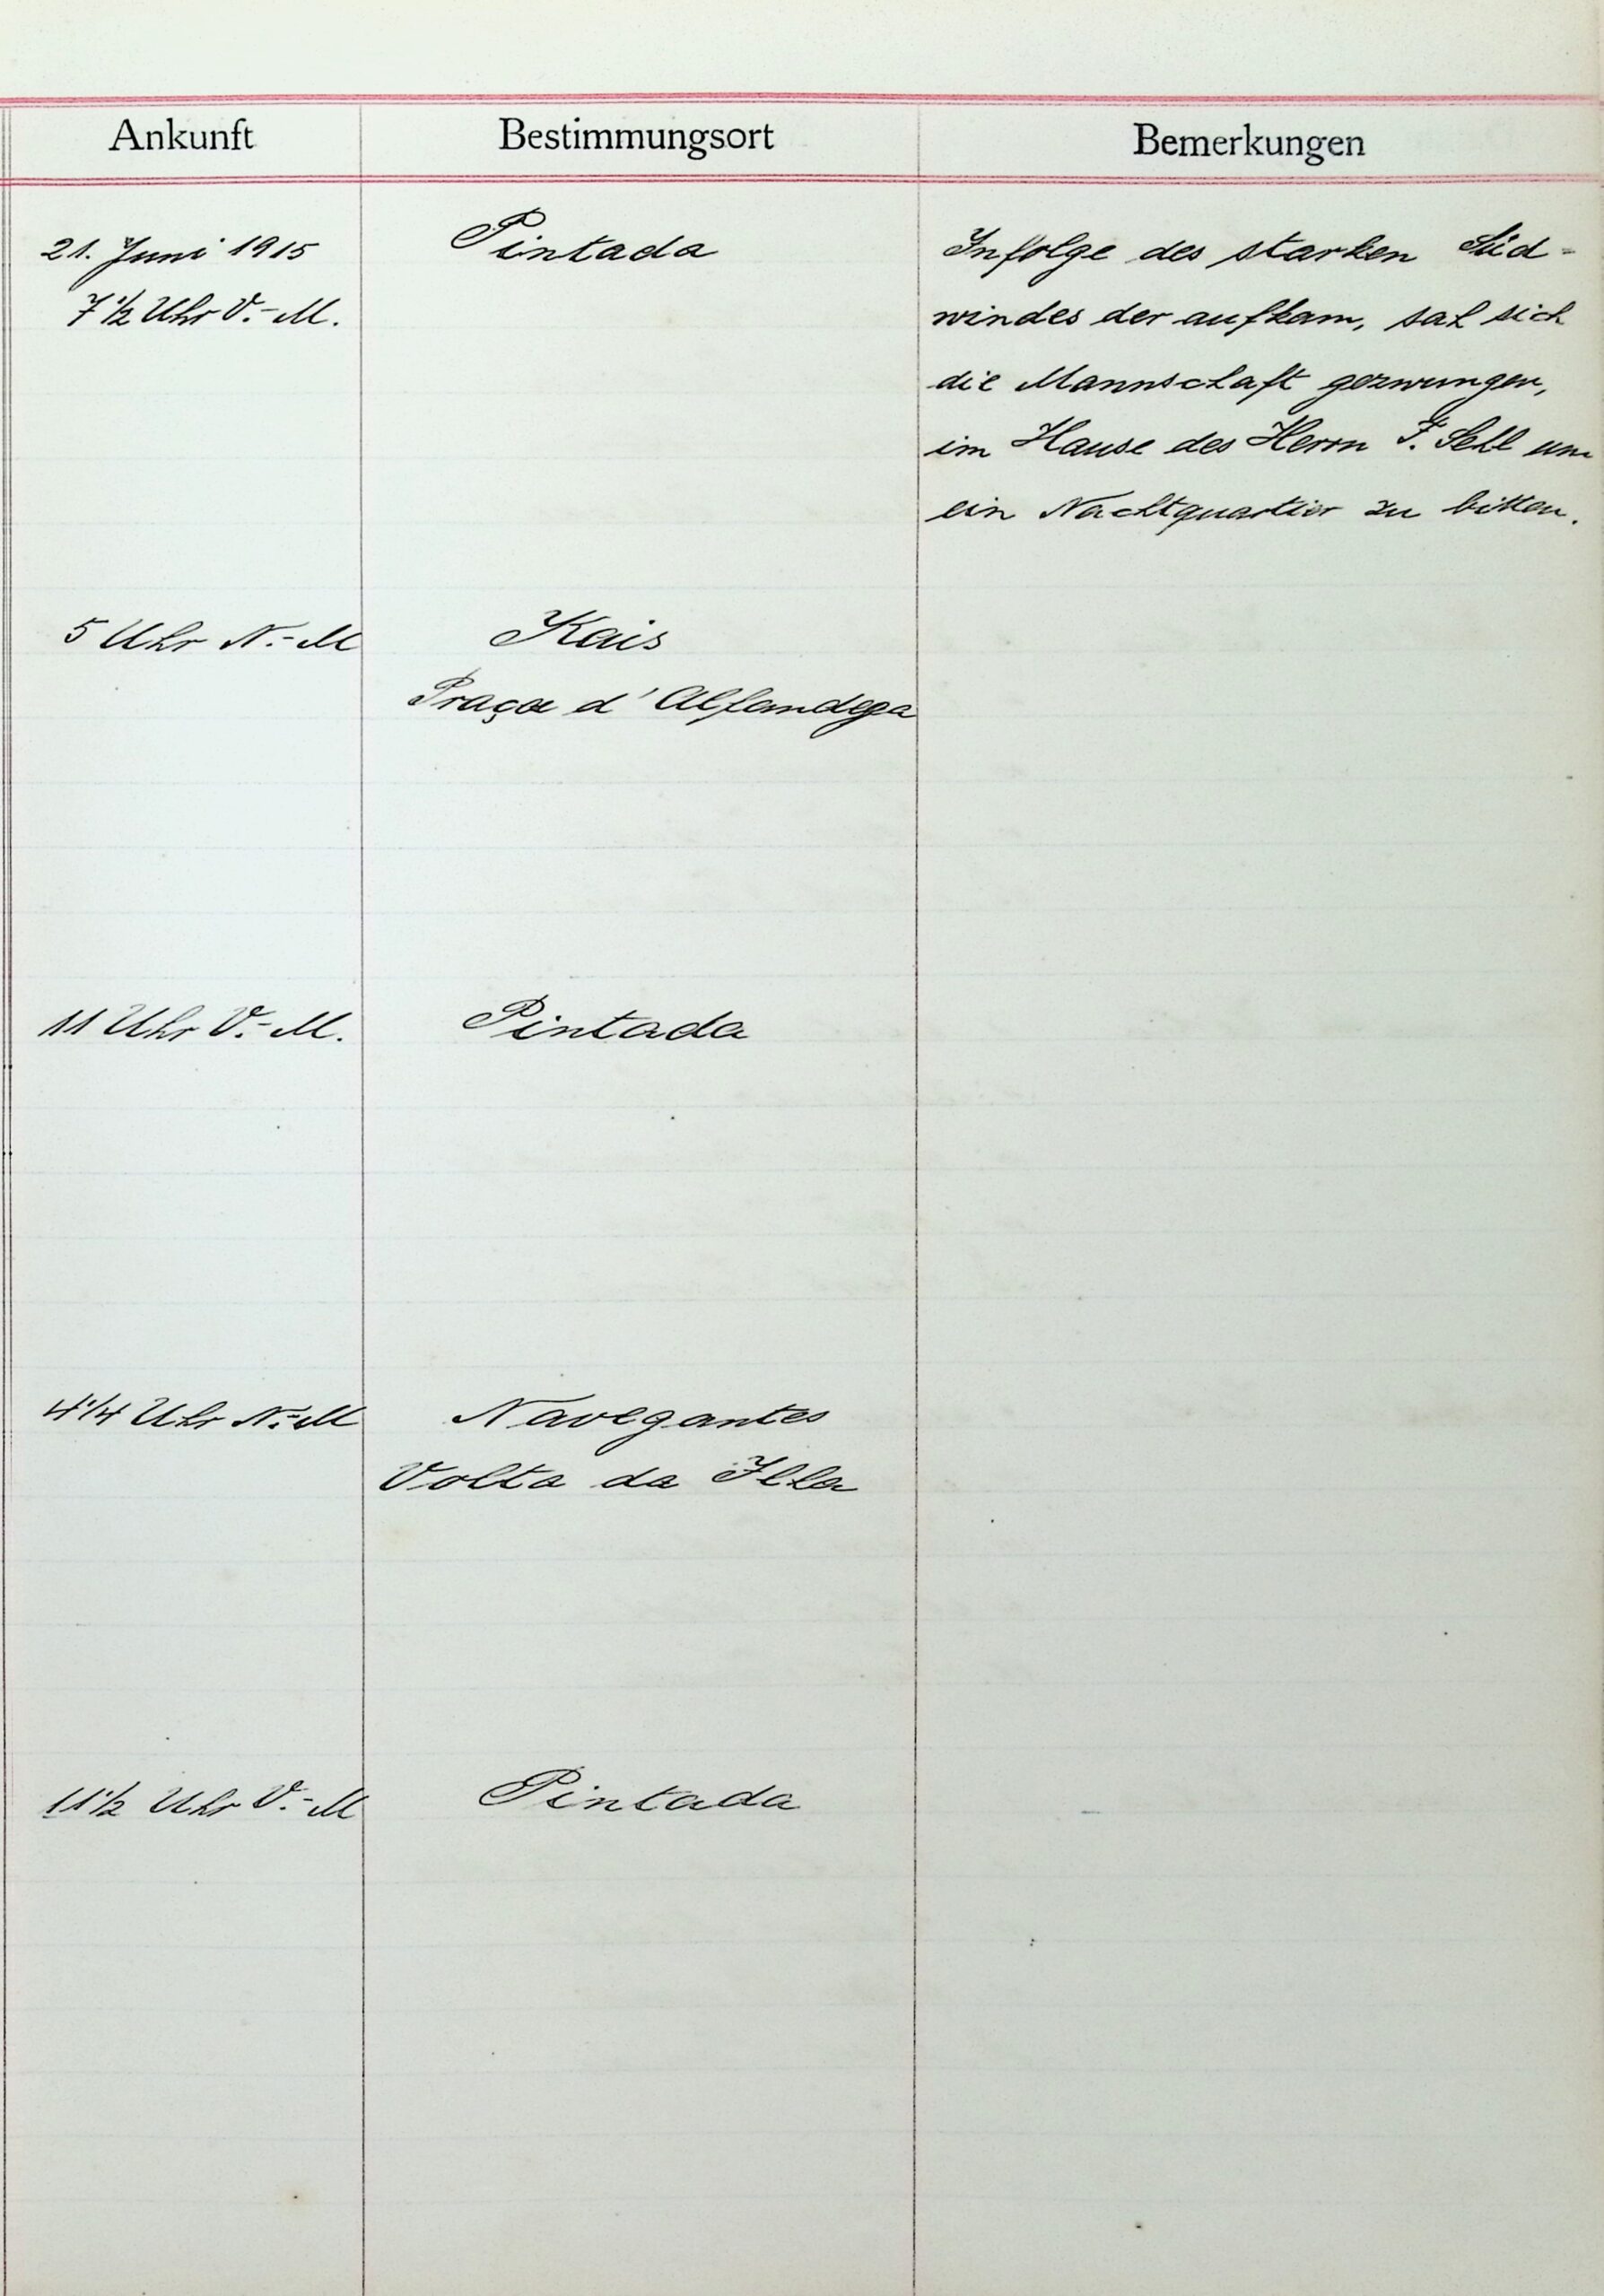 Ankunft Bestimmungsort Bemerkungen
21. Juni 1915 Pintada Infolge des starken Süd-
7 1/2 Uhr V.-M. windes der aufkam, sah sich
die Mannschaft gezwungen,
im Hause des Herrn F. Sehl um
ein Nachtquartier zu bitten.
5 Uhr N.-M Kais
Praça d'Alfandega
11 Uhr V.-M. Pintada
4 1/4 Uhr N.-M Navegantes
Volta da Ilha
11 1/2 Uhr V.-M Pintada